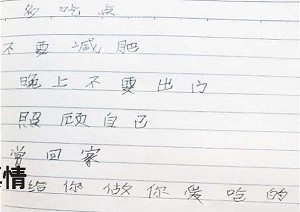 多吃点
不要减肥
晚上不要出门
照顾自己
常回家
情
给你做你爱吃的